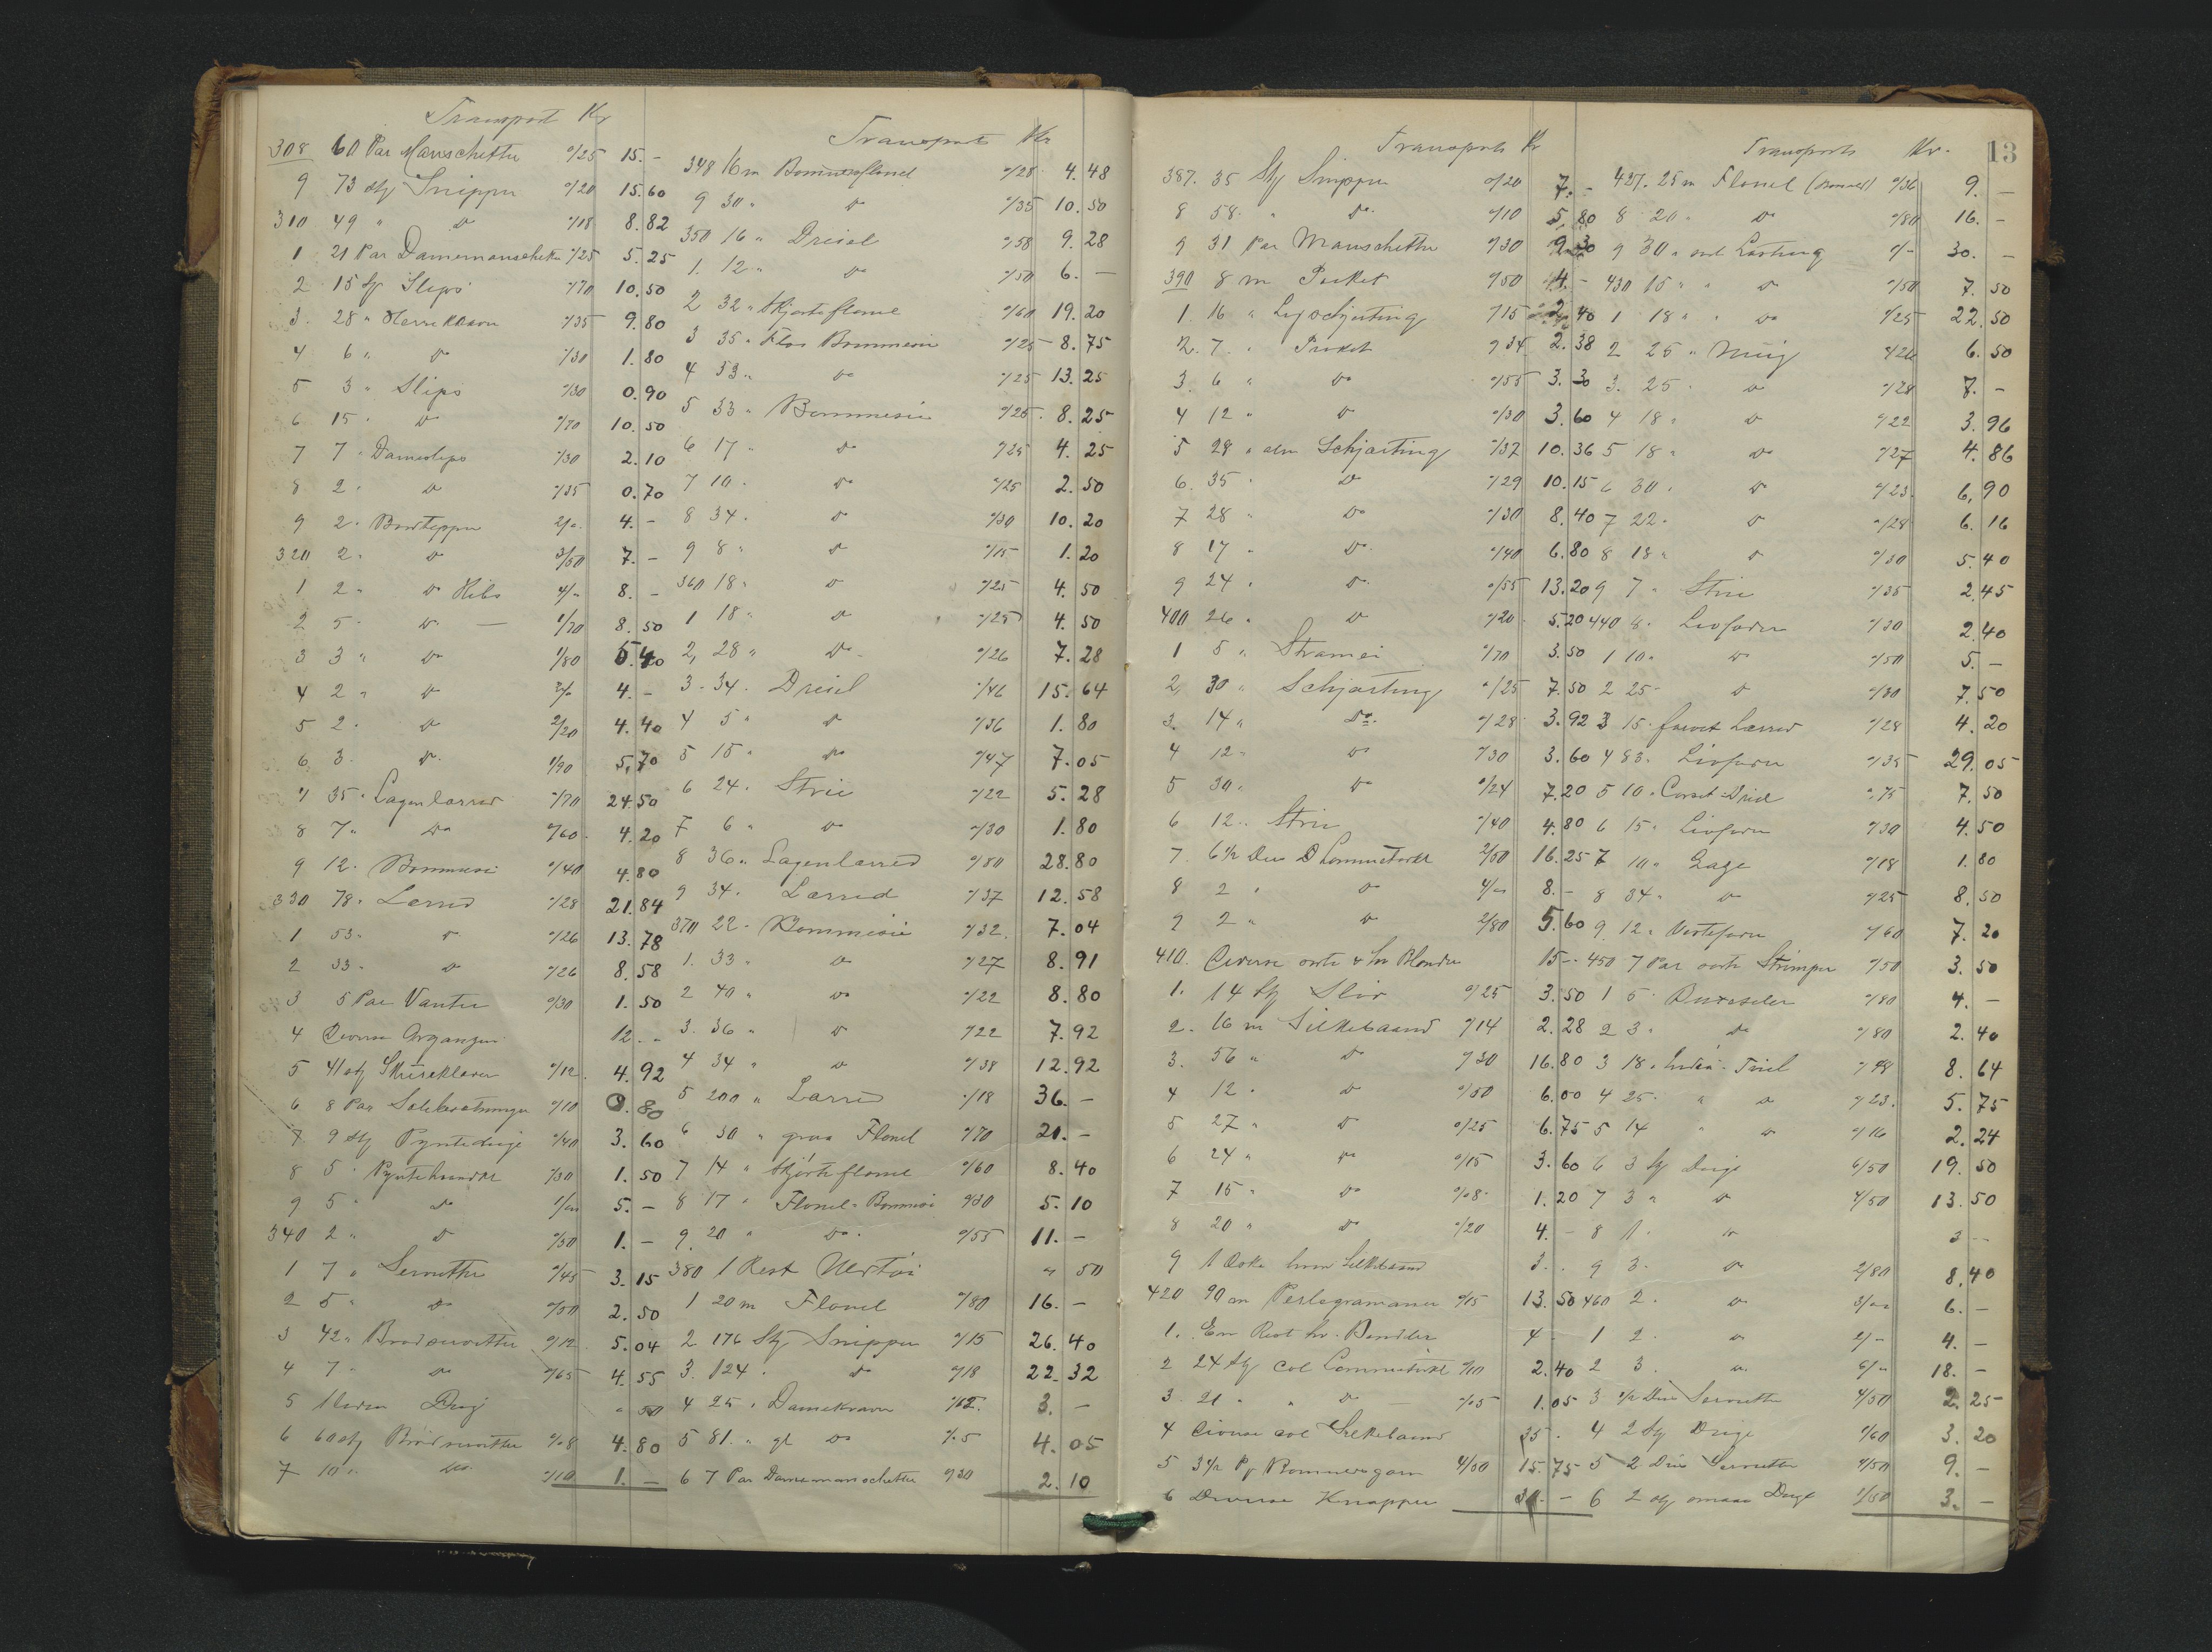 Transport Kr
308 60 Par Manschetter %25 15.-
9 73 stk Snipper %20 15.60
310 49 " do %18 8.82
1 21 Par Damemanschetter %25 5.25
2 15 stk Slips %70 10.50
3. 28 " %35 9.80
4 6 " do %30 1.80
5 3 " Slips %30 0.90
6 15 " do %70 10.50
7 7 " Dameslips %30 2.10
8 2 " do %35 0.70
9 2 " Bordtepper 2/" 4.-
320 2 " do 3/50 7.-
1 2 " do Hibs 4/" 8.-
2 5 " do — 1/70 8.50
3 3 " do 1/80 5.40
4 2 " do 2/" 4.-
5 2 " do 2/20 4.40
6 3 " do 1/90 5.70
7 35 " Lagenlærred %70 24.50
8 7 " do %60 4.20
9 12 " Bommesi %40 4.80
330 78 " Lerred %28 21.84
1 53 " do %26 13.78
2 33 " do %26 8.58
3 5 Par Vanter %30 1.50
4 Diverse Organger 12.-
5 41 stk Skureklarer %12 4.92
6 8 Par %10 0.80
7 9 stk Pynteduge %40 3.60
8 5 " %30 1.50
9 5 " do 1/" 5.-
340 2 " do %50 1.-
1 7 " Servietter %45 3.15
2 5 " do %50 2.50
3 42 " Brødservietter %12 5.04
4 7 " do %65 4.55
5 1 Dug " 50
6 60 stk Brødservietter %8 4.80
7 10 " do %10 1.-
Transport Kr.
348 16 m Bommesflonel %28 4.48
9 30 " do %35 10.50
350 16 " Dreiel %58 9.28
1. 12 " do %50 6.-
2 32 " Skjorteflonel %60 19.20
3 35 " Bommesi %25 8.75
4 53 " do %25 13.25
5 33 " Bommesie %25 8.25
6 17 " do %25 4.25
7 10 " do %25 2.50
8 34 " do %30 10.20
9 8 " do %15 1.20
360 18 " do %25 4.50
1 18 " do %25 4.50
2 28 " do %26 7.28
3 34 " Dreiel %46 15.64
4 5 " do %36 1.80
5 15 " do %47 7.05
6 24 " Strie %22 5.28
7 6 " do %30 1.80
8 36 " Lagenlærred %80 28.80
9 34 " Lærred %37 12.58
370 22 " Bommesie %32 7.04
1. 33 " do %27 8.91
2 40 " do %22 8.80
3. 36 " do %22 7.92
4 34 " do %38 12.92
5 200 " Lærred %18 36.-
6 30 " graa Flonel %70 21.-
7 14 " Skjorteflonel %60 8.40
8 17 " Flonel-Bommesi %30 5.10
9. 20 " do. %55 11.-
380 1 Rest " 50
1 20 m Flonel %80 16.-
2 176 Stk Snipper %15 26.40
3. 124 " do %18 22.32
4 25 " Damekraver %12 3.-
5 81 " gl do %5 4.05
6 7 Par Damemanschetter %30 2.10
Transport Kr
387. 35 Stk Snipper %20 7.-
8 58 " do. %10 5.80
9 31 Par Manschetter %30 9.30
390 8 m Perket %50 4.-
1. 16 " Schjerting %15 2.40
2. 7. " Perket %34 2.38
3. 6 " do %55 3.30
4 12 " do %30 3.60
5 28 " Schjerting %37 10.36
6. 35 " do %29 10.15
7 28 " do %30 8.40
8 17 " do %40 6.80
9 24 " do %55 13.20
400 26 " do %20 5.20
1 5 " Stramei %70 3.50
2. 30 " Schjerting %25 7.50
3. 14 " do. %28 3.92
4 12 " do %30 3.60
5 30 " do %24 7.20
6 12 " Strie %40 4.80
7. 6½ Dus D Lommetørkl 2/50 16.25
8 2 " do 4/" 8.-
9 2 " do 2/80 5.60
410. Diverse sorte & hv Blonder 15.-
1. 14 stk Slør %25 3.50
2. 16 m Silkebaand %14 2.28
3. 56 " do %30 16.80
4 12 " do %50 6.00
5 27 " do %25 6.75
6 24 " do %15 3.60
7 15 " do %8 1.20
8 20 " do %20 4.-
9 1 Æske Silkebaand 3..
420 90 m %15 13.50
1. En Rest hv. Bendler 4 -
2 24 stk col Lommetørkl %10 2.40
3. 21 " " do %5 1.05
4 Diverse col Silkebaand 35.
5 3½ Pk Bommesgarn 4/50 15.75
6 Diverse Knapper -
Transport Kr. 13
427. 25 m Flonel %36 9.-
8 20 " do %80 16.-
9 30 " Lasting %- 30.-
430 15 " " do %50 7.50
1 18 " " do 1/25 22.50
2 25 " %26 6.50
3. 25 " do %28 7.-
4 18 " do %22 3.96
5 18 " do %27 4.86
6 30 " do %23 6.90
7 22 " do %28 6.16
8 18 " do %30 5.40
9 7 " Strie %35 2.45
440 8 " Livforer %30 2.40
1 10 " do %50 5.-
2 25 " do %30 7.50
3 15 " farvet Lærred %28 4.20
4 83 " Livforer %35 29.05
5 10 " Corset Dreiel %75 7.50
6 15 " Livforer %30 4.50
7 10 " Gage %18 1.80
8 34 " do %25 8.50
9 12 " Vesteforer %60 7.20
450 7 Par sorte Strømper %50 3.50
1 5 " Buxeseler %80 4.-
2 3 " do %80 2.40
3 18 " %48 8.64
4 25 " " do %23 5.75
5 14 " " do %16 2.24
6 3 stk Duge 6/50 19.50
7 3 " do 4/50 13.50
8 1 " do 3 --
9 3 " do 2/80 8.40
460 2 " do 3/" 6.-
1 2 " do 2/- 4.-
2 3 " do 6/" 18.-
3 ½ Dus Servietter 4/50 2.25
4 2 Stk Duge 1/60 3.20
5 2 Dus Servietter 4/50 9.-
6 2 stk smaa Duge 1/50 3.-